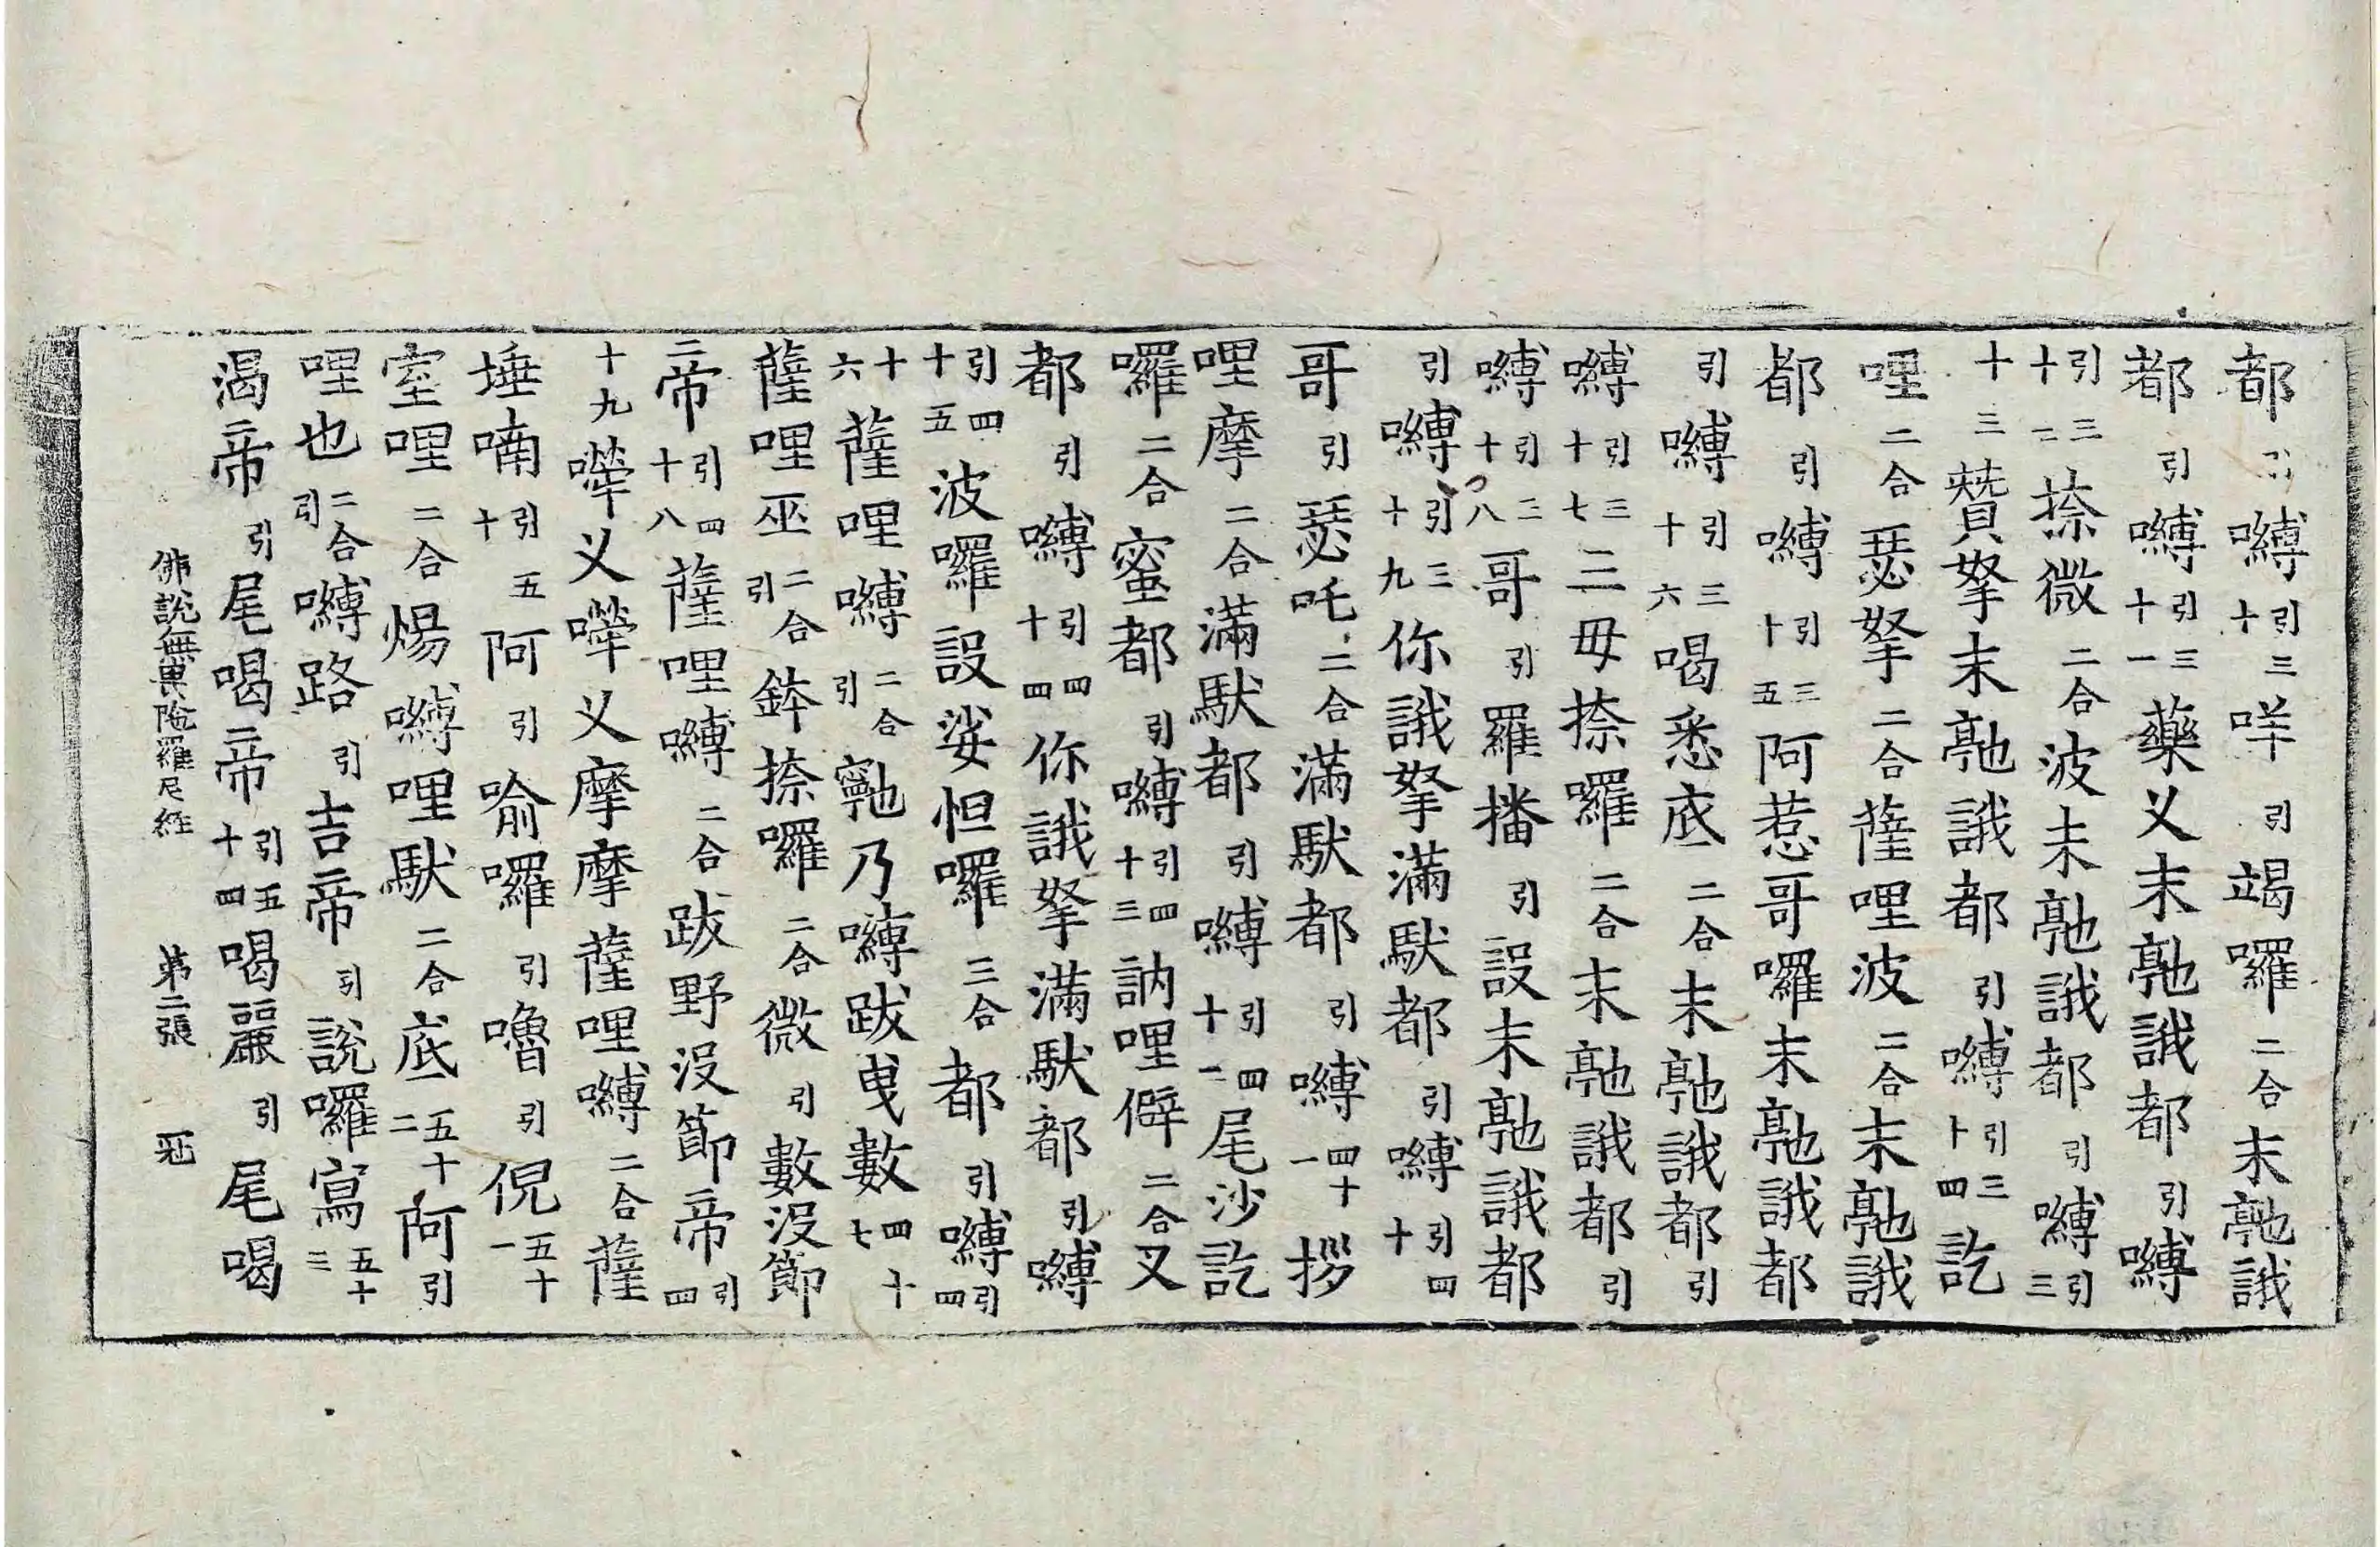 都引嚩引三十咩引竭囉二合末𠆙誐
都引嚩引三十一藥义末𠆙誐都引嚩
引三十二捺微二合波末𠆙誐都引嚩引三
十三贊拏末𠆙誐都引嚩引三十四訖
哩二合瑟拏二合薩哩波二合末𠆙誐
都引嚩引三十五阿惹哥囉末𠆙誐都
引嚩引三十六喝悉底二合末𠆙誐都引
嚩引三十七三毋捺囉二合末𠆙誐都引
嚩引三十八哥引羅播引設末𠆙誐都
引嚩引三十九你誐拏滿馱都引嚩引四十
哥引瑟吒二合滿馱都引嚩四十一拶
哩摩二合滿馱都引嚩引四十二尾沙訖
囉二合蜜都引嚩引四十三訥哩僻二合叉
都引嚩引四十四你誐拏滿馱都引嚩
引四十五波囉設娑怛囉三合都引嚩引四
十六薩哩嚩二合引𪧀乃嚩跋曵數四十七
薩哩巫二合引鉢捺囉二合微引數没節
帝引四十八薩哩嚩二合跋野没節帝引四
十九㘑义㘑义摩摩薩哩嚩二合薩
埵喃引五十阿引喻囉引嚕引倪五十一
室哩二合煬嚩哩馱二合底五十二阿引
哩也二合引嚩路引吉帝引說囉寫五十三
渴帝引尾喝帝引五十四喝麗引尾喝
佛說無畏陁羅尼經 第二張